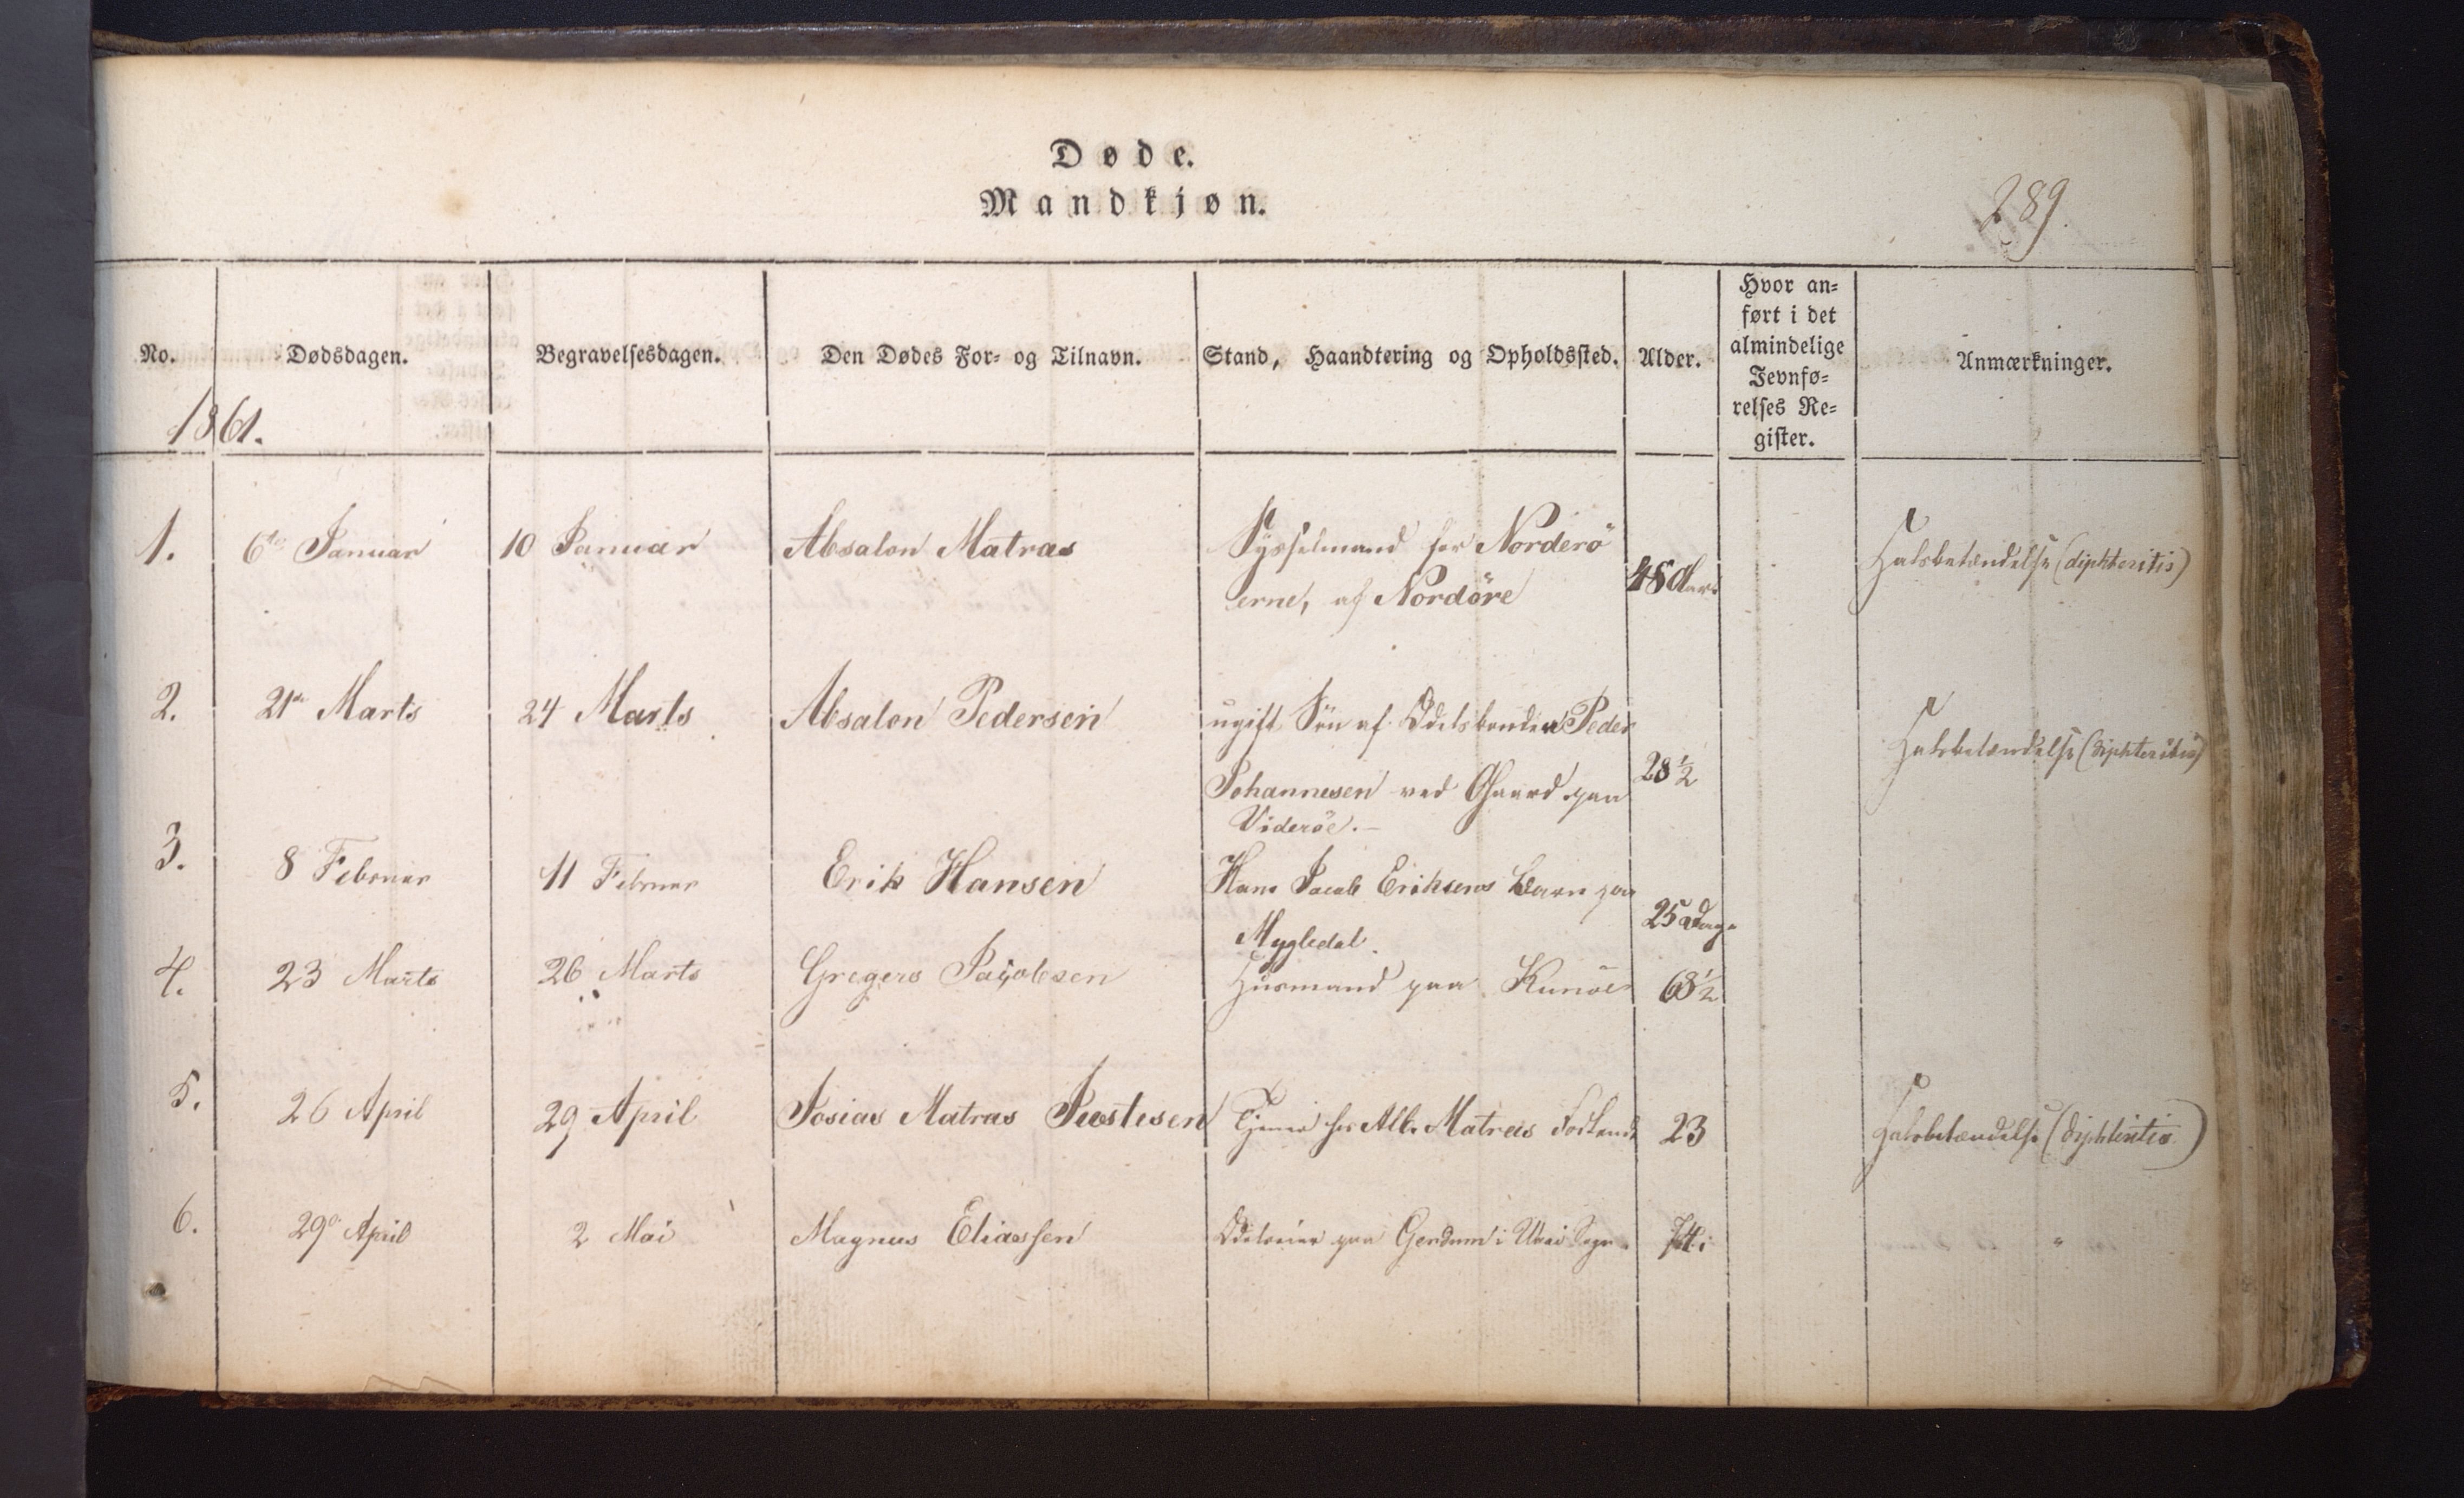 Døde.
Mandkjøn.
289.
No.
Dødsdagen.
Begravelsesdagen.
Den Dødes For- og Tilnavn.
Stand, Haandtering og Opholdssted.
Alder.
Hvor an-
ført i det
almindelige
Jevnfø-
relses Re-
gister.
Anmærkninger.
1861.
1. 6te Januar 10 Januar Absalon Matras Sysselmand for Norderö Halsbetændelse (diphteritis)
erne, af Nordöre 48 Aar
2. 21de Marts 24 Marts Absalon Pedersen ugift Sön af Odelsbonden Peder Halsbetændelse (diphteritis)
Johannesen ved Gaard paa 28½
Videröe.
3. 8 Februar 11 Februar Erik Hansen Hans Jacob Eriksens Barn paa
Mygledal. 25 Dage
4. 23 Marts 26 Marts Gregers Jacobsen Husmand paa Kunöe 63½
5. 26 April 29 April Josias Matras Joostesen Tjener hos Matras 23 Halsbetændelse (diphteritis)
6. 29de April 2 Mai Magnus Eliassen Odelseier paa i Sogn. 74 "